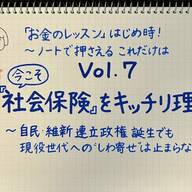 「お金のレッスン」はじめ時!
〜ノートで押さえる これだけは
Vol.7
今こそ
『社会保険』をキッチリ理
〜自民・維新 連立政権 誕生でも
現役世代への"しわ寄せ"は止まらな